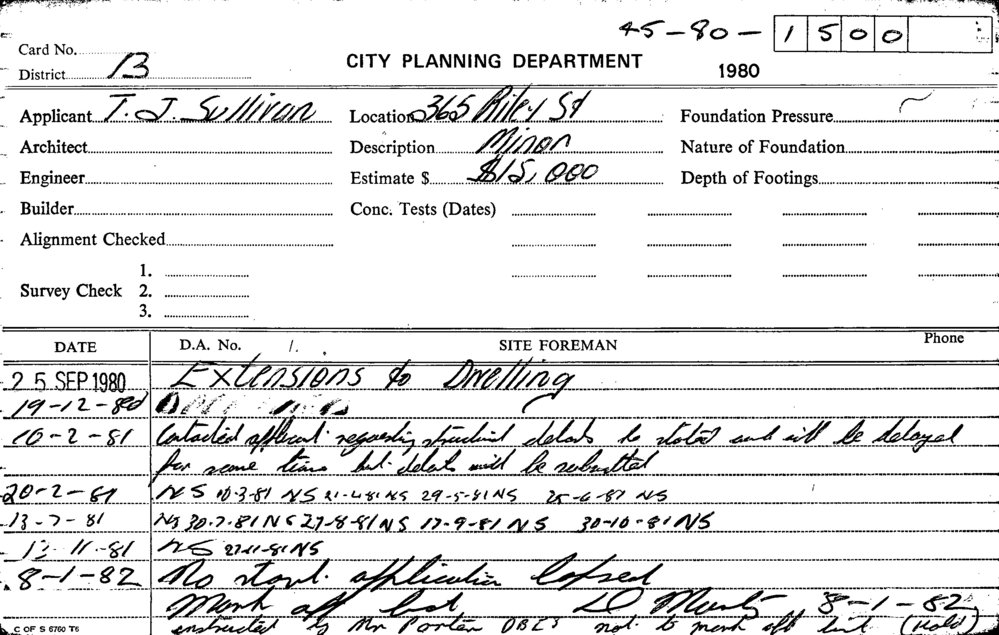 45-80-1500
Card No.
District 13
CITY PLANNING DEPARTMENT
1980
Applicant T. J. Sullivan Location 365 Riley St Foundation Pressure
Architect Description Minor Nature of Foundation
Engineer Estimate $ $15,000 Depth of Footings
Builder Conc. Tests (Dates)
Alignment Checked
1.
Survey Check 2.
3.
DATE D.A. No. /. SITE FOREMAN Phone
25 SEP 1980 Extensions to Dwelling
19-12-80
10-2-81 Contacted applicant requesting structural details he stated and will be delayed
for some time but details will be submitted
20-2-81 NS 10-3-81 NS 21-4-81 NS 29-5-81 NS 25-6-81 NS
13-7-81 NS 30-7-81 NS 27-8-81 NS 17-9-81 NS 30-10-81 NS
12-11-81 NS 27-11-81 NS
8-1-82 No start. application lapsed
Mark off list 8-1-82
instructed by Mr Porter not to mark off list (Hold)
C OF S 6760 T6